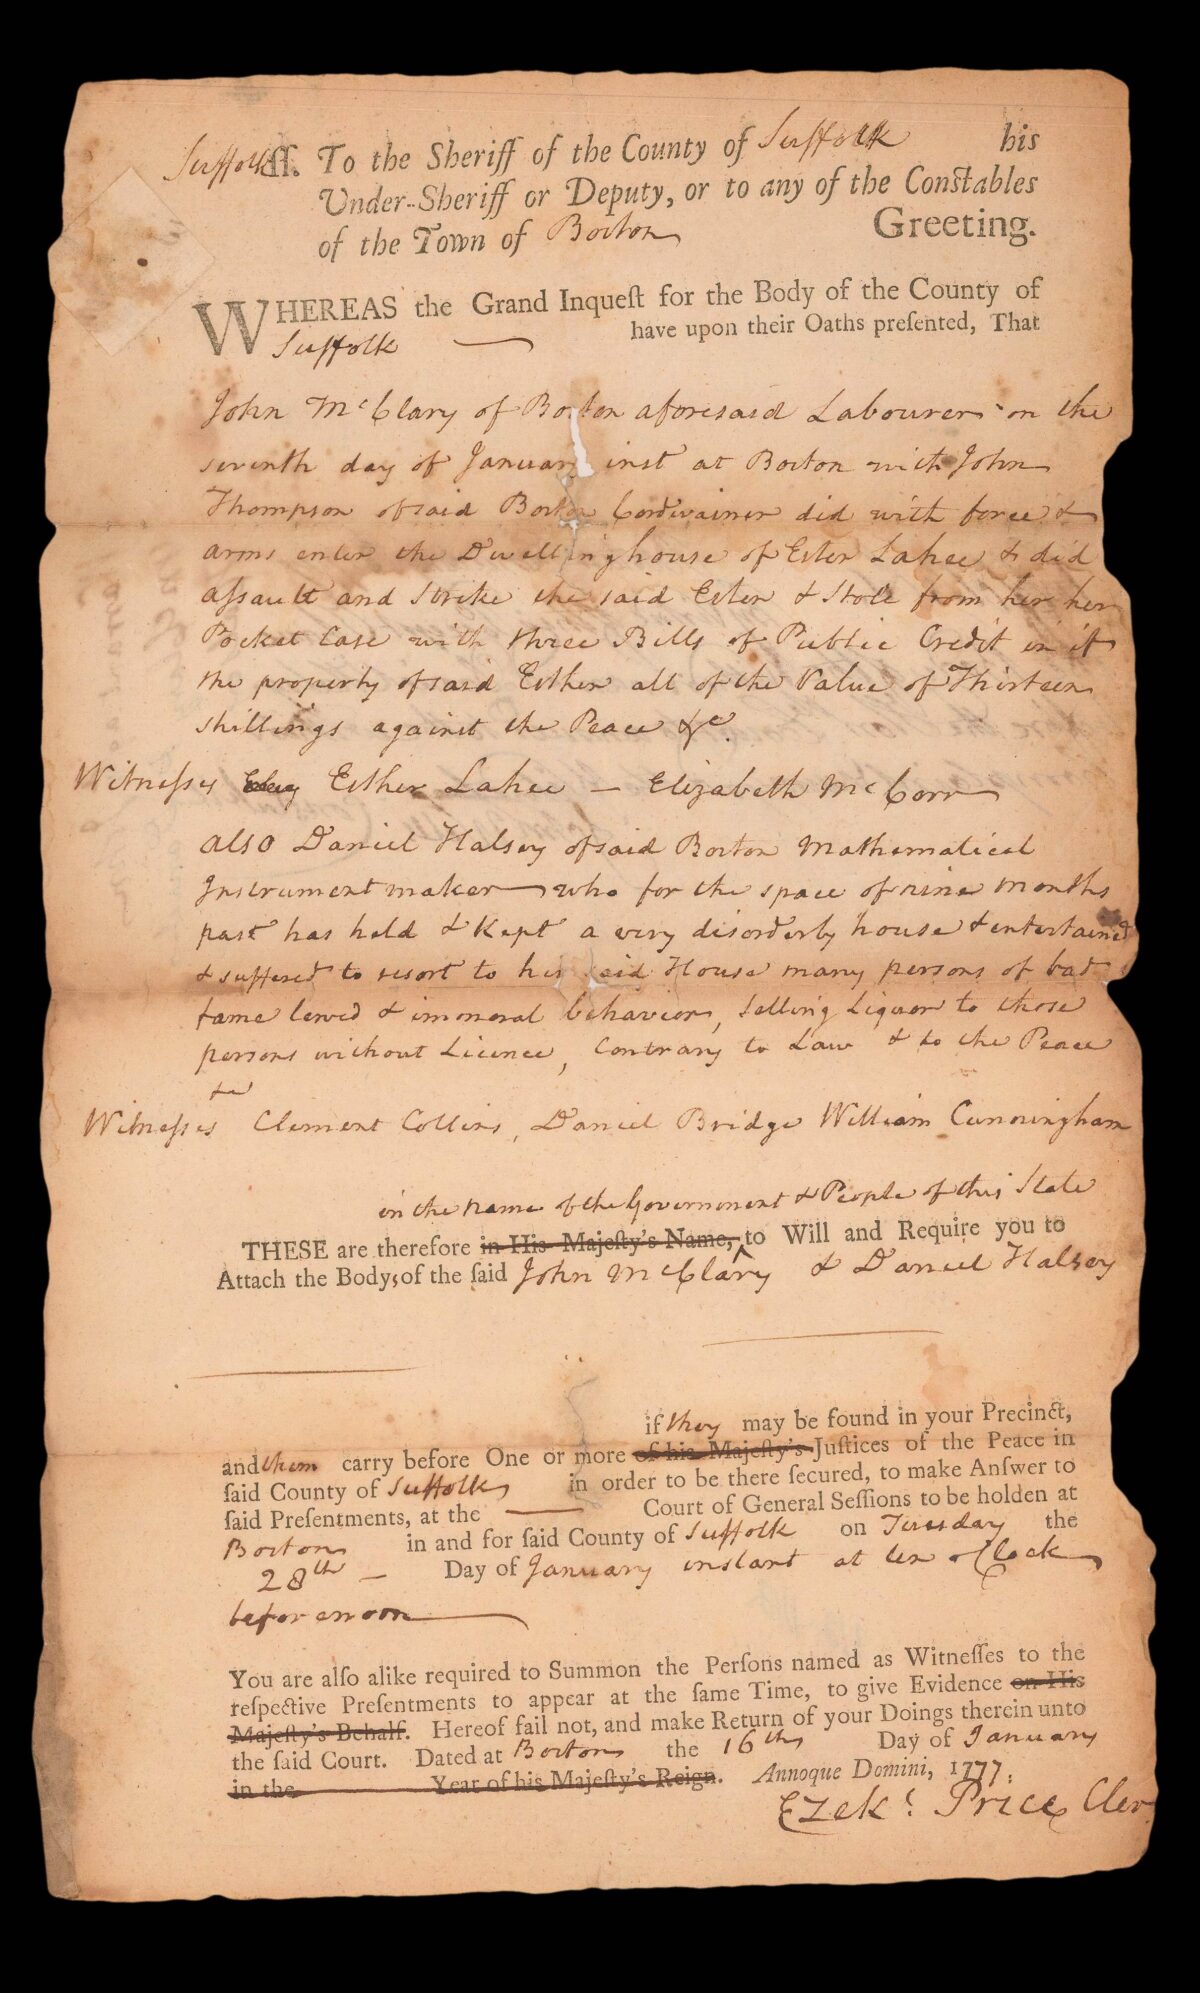 Suffolk ſſ. To the Sheriff of the County of Suffolk his
Under-Sheriff or Deputy, or to any of the Conſtables
of the Town of Boston Greeting.
WHEREAS the Grand Inqueſt for the Body of the County of
Suffolk have upon their Oaths preſented, That
John McClary of Boston aforesaid Labourer on the
seventh day of January inst at Boston with John
Thompson of said Boston Cordwainer did with force &
arms enter the Dwelling house of Ester Lahee & did
aſsault and Strike the said Ester & Stole from her her
Pocket Case with three Bills of Public Credit in it
the property of said Esther all of the Value of Thirteen
shillings against the Peace &c.
Witneſses Esther Lahee — Elizabeth McCorr
also Daniel Halsey of said Boston Mathematical
Instrument maker who for the space of nine months
past has held & Kept a very disorderly house & entertained
& suffered to resort to his said House many persons of bad
fame lewd & immoral behavior, Selling Liquor to those
persons without Licence, Contrary to Law & to the Peace
&c
Witneſses Clement Collins, Daniel Bridge William Cunningham
in the name of the Government & People of this State
THESE are therefore in His Majeſty's Name, to Will and Require you to
Attach the Bodys of the ſaid John McClary & Daniel Halsey
if they may be found in your Precinct,
and them carry before One or more of his Majeſty's Juſtices of the Peace in
ſaid County of Suffolk in order to be there ſecured, to make Anſwer to
ſaid Preſentments, at the — Court of General Seſſions to be holden at
Boston in and for ſaid County of Suffolk on Tuesday the
28th — Day of January instant at ten o Clock
beforenoon
You are alſo alike required to Summon the Perſons named as Witneſſes to the
reſpective Preſentments to appear at the ſame Time, to give Evidence on His
Majeſty's Behalf. Hereof fail not, and make Return of your Doings therein unto
the ſaid Court. Dated at Boston the 16th Day of January
in the Year of his Majeſty's Reign. Annoque Domini, 1777.
Ezekl Price Cler